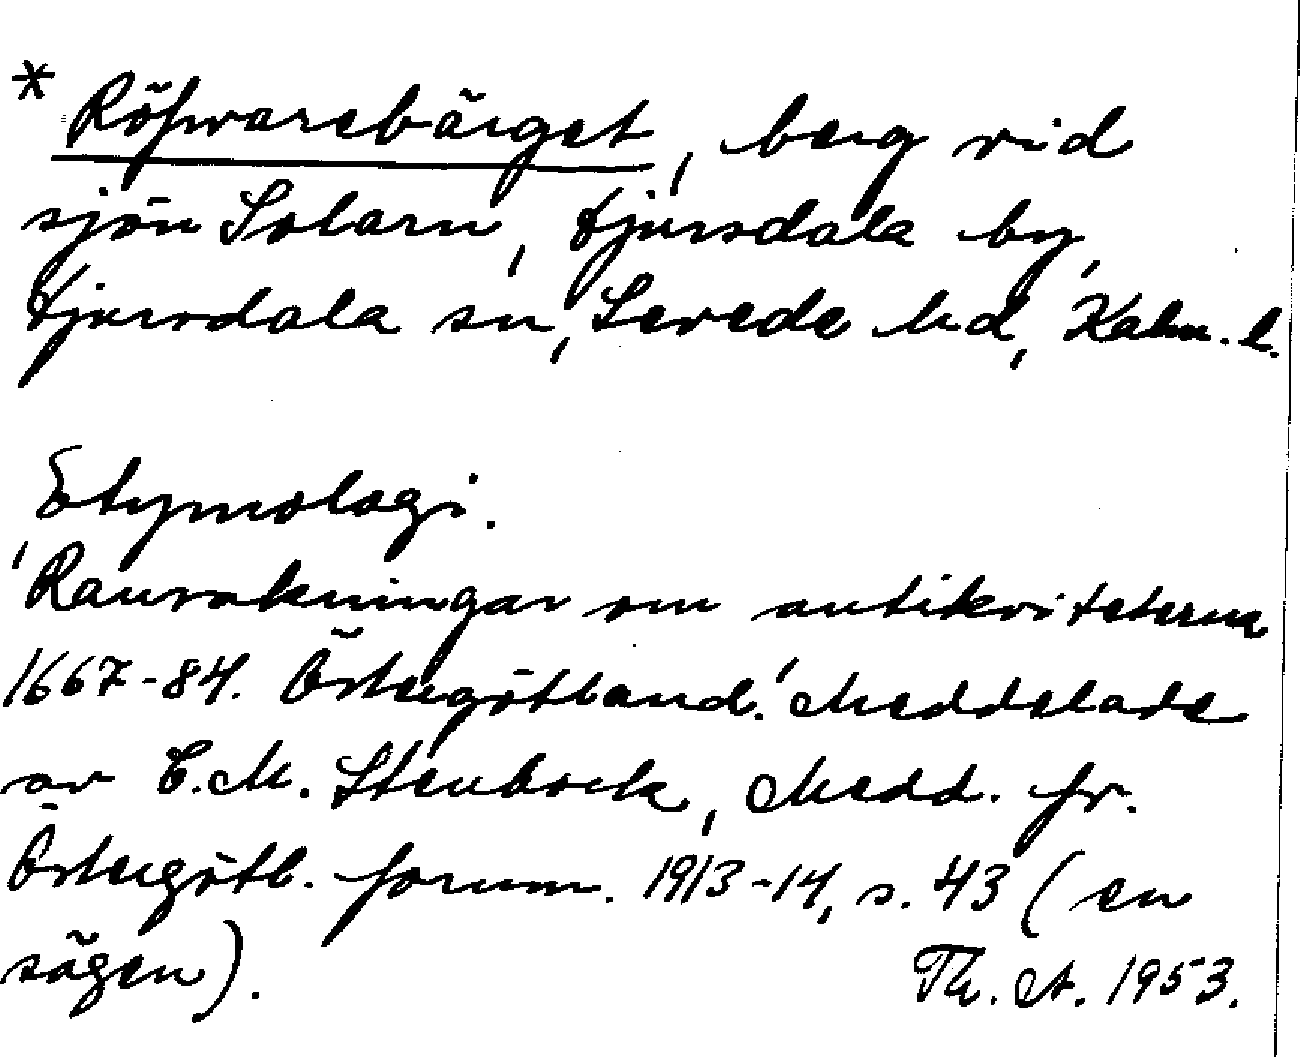 * Röfwarebärget, berg vid
sjön Solaren, Djursdala by,
Djursdala sn, Sevede hd, Kalm. l.
Etymologi.
'Rannsakningar om antikviteterna
1667-84. Östergötland.' Meddelade
av C. M. Stenbock, Medd. fr.
Östergötl. fornm. 1913-14, s. 43 (en
sägen).
Th. A. 1953.